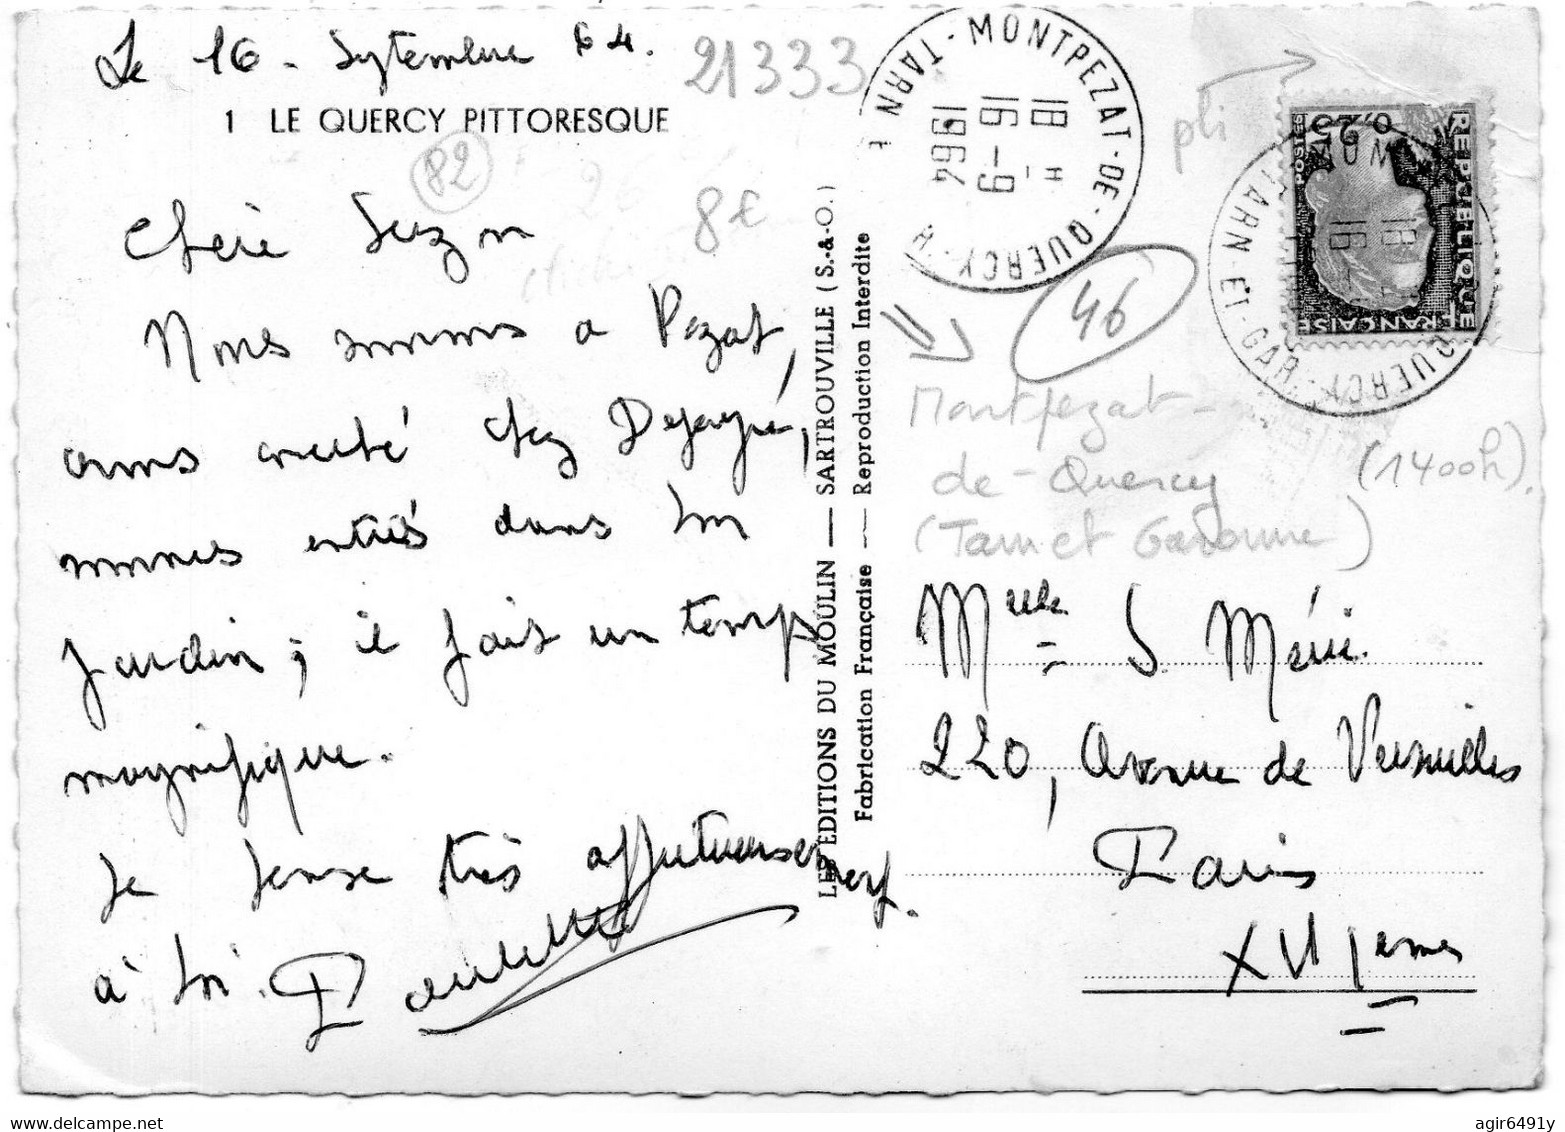 Le 16 - Septembre 64.
21333
1 LE QUERCY PITTORESQUE
82
8€
Chère Suzon
Nous sommes a Pezat,
avons chez
sommes entrés dans son
Jardin ; il fait un temps
magnifique.
Je pense très affectueusement
à toi. Paulette
LES EDITIONS DU MOULIN — SARTROUVILLE (S.-&-O.)
Fabrication Française — Reproduction Interdite
MONTPEZAT-DE-QUERCY
TARN E
18 H
16 - 9
1964
pli
REPUBLIQUE
FRANÇAISE
0,25
18
16 -
QUERCY
TARN-ET-GAR
46
Montpezat-
de-Quercy
(1400h).
(Tarn et Garonne)
Melle S. Méric.
220, Avenue de Versailles
Paris
XVIème
agir6491y